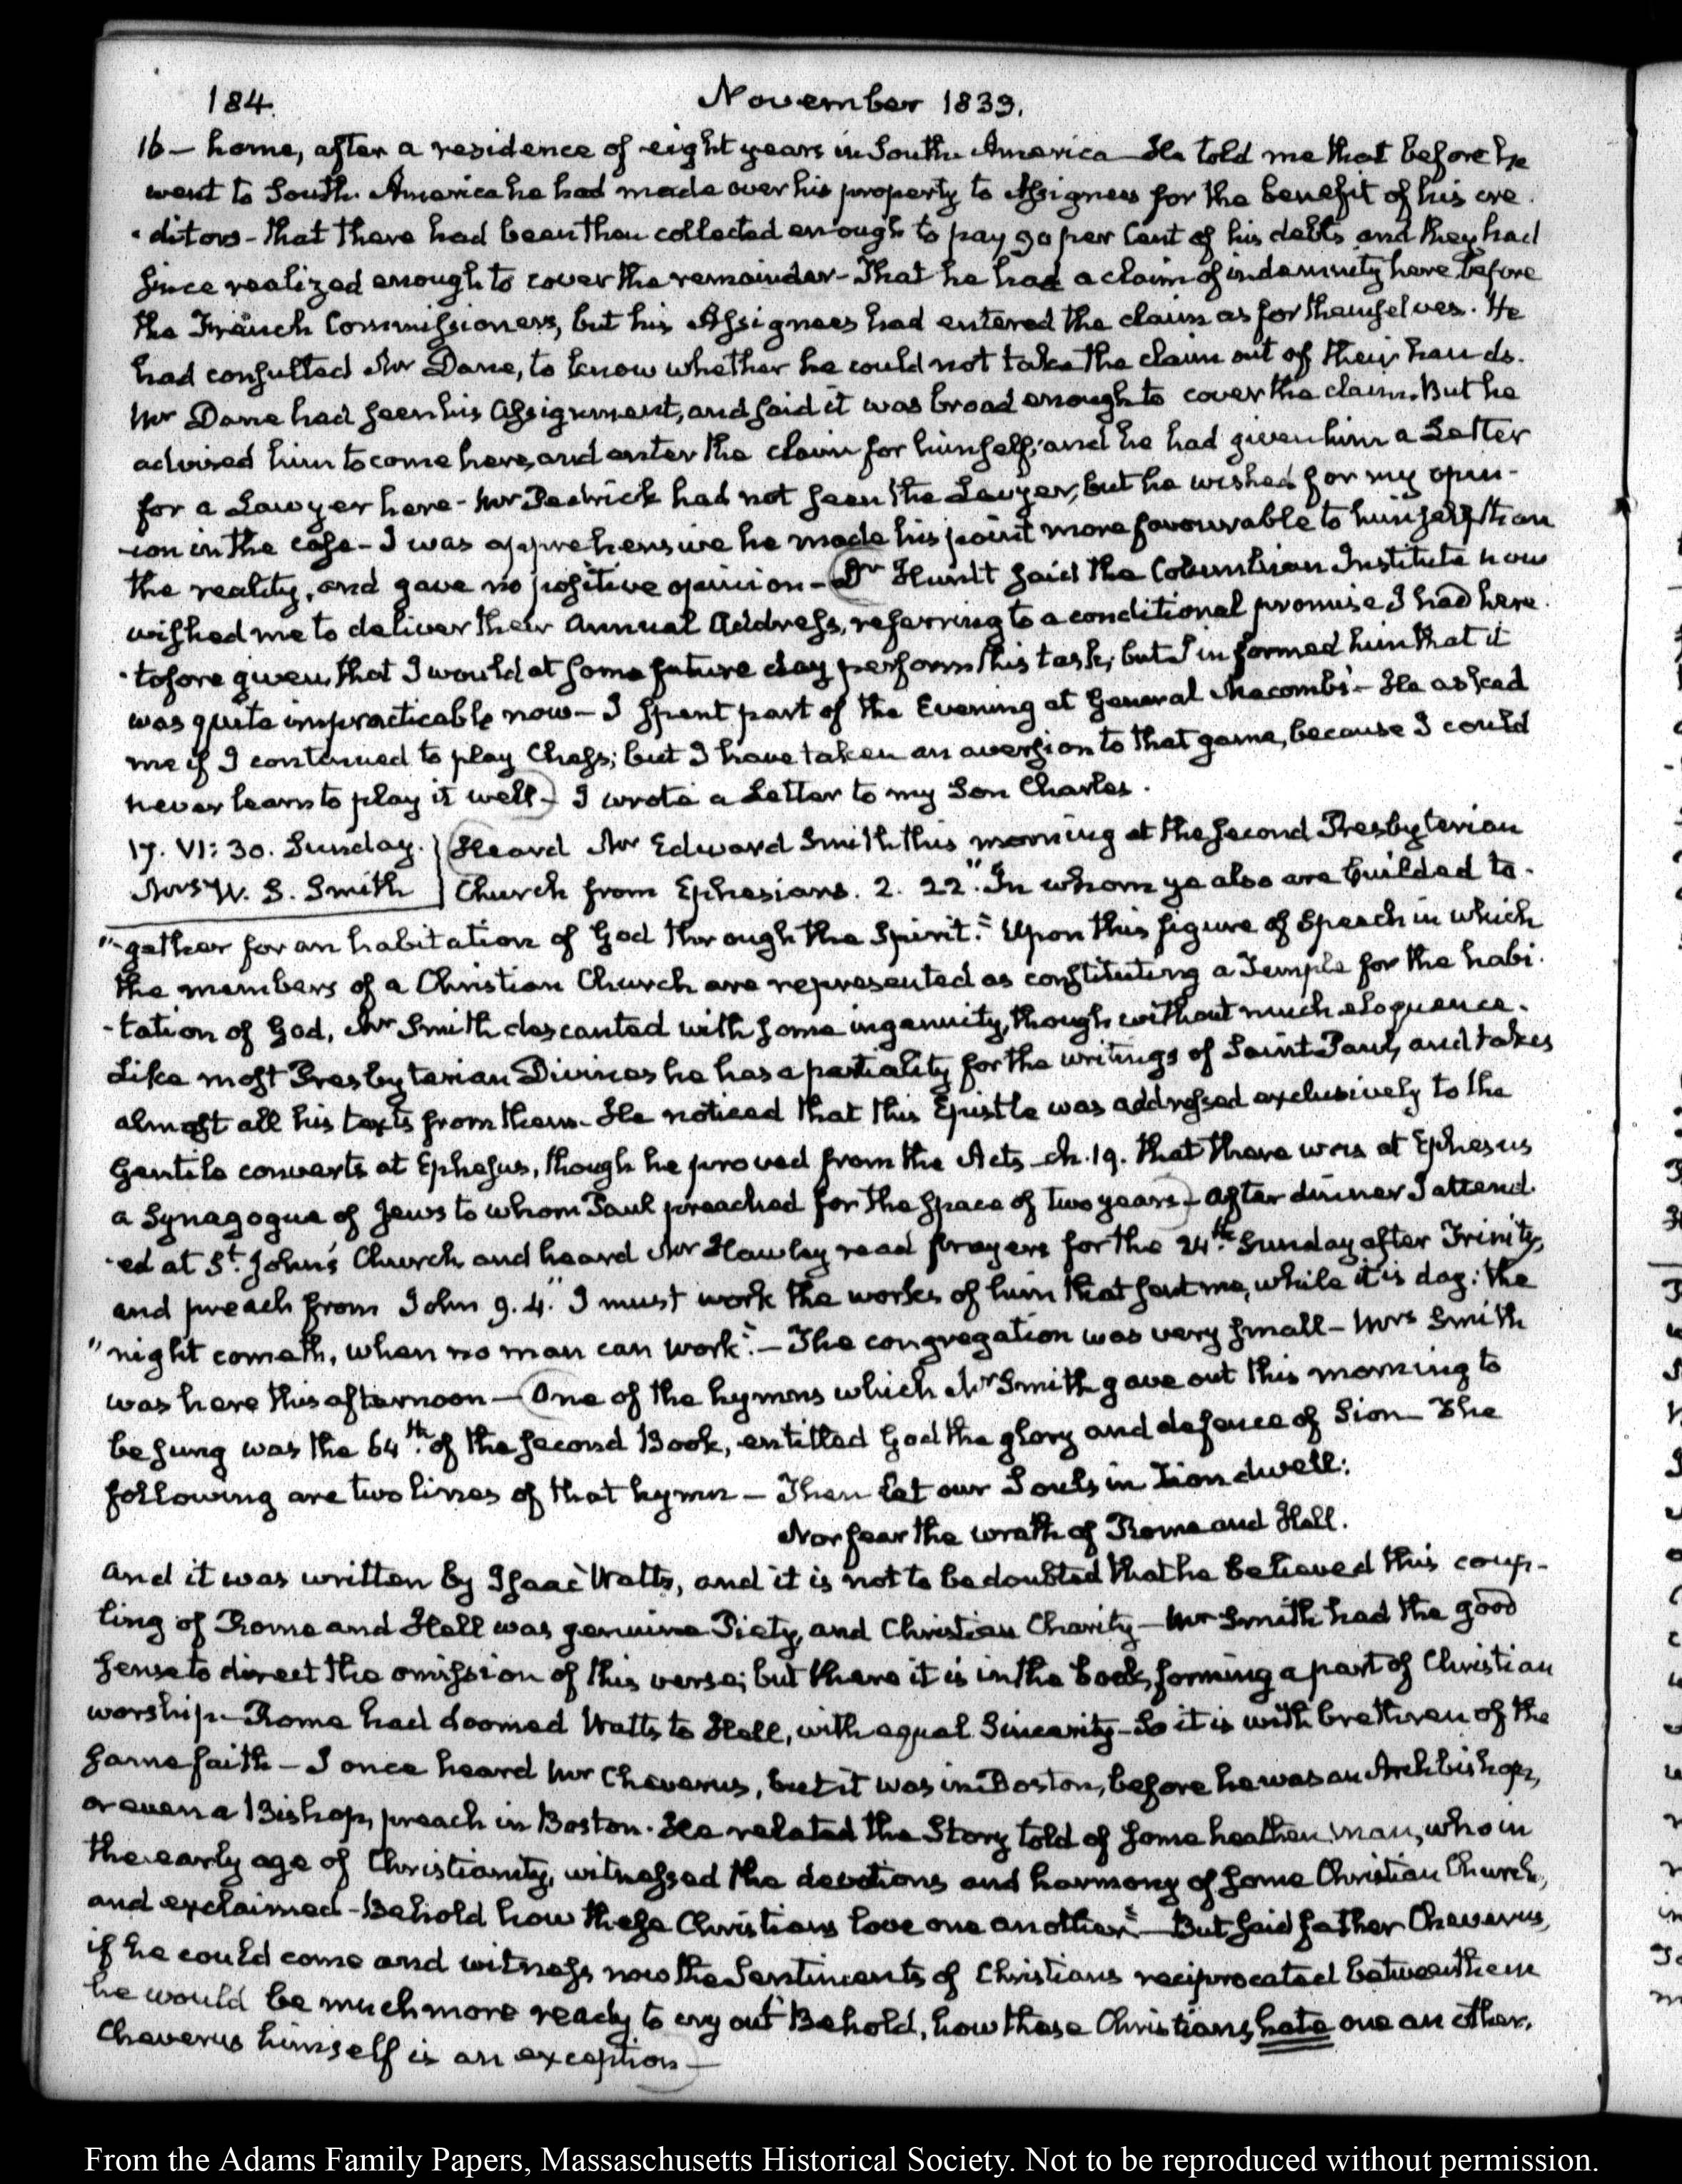 184.
November 1833.
16 — home, after a residence of eight years in South America — He told me that before he
went to South America he had made over his property to Assignees for the benefit of his cre-
-ditors - that there had been then collected enough to pay 90 per Cent of his debts and they had
since realized enough to cover the remainder - That he had a claim of indemnity here before
the French Commissioners, but his Assignees had entered the claim as for themselves. He
had consulted Mr Dane, to know whether he could not take the claim out of their hands.
Mr Dane had seen his Assignment, and said it was broad enough to cover the claim. But he
advised him to come here, and enter the claim for himself; and he had given him a Letter
for a Lawyer here - Mr Pedrick had not seen the Lawyer, but he wished for my opin-
-ion in the case - I was apprehensive he made his point more favourable to himself than
the reality, and gave no positive opinion - Dr Huntt said the Columbian Institute now
wished me to deliver their Annual Address, referring to a conditional promise I had here-
-tofore given, that I would at some future day perform this task; but I informed him that it
was quite impracticable now - I spent part of the Evening at General Macomb's - He asked
me if I continued to play Chess; but I have taken an aversion to that game, because I could
never learn to play it well - I wrote a Letter to my Son Charles.
17. VI: 30. Sunday. Heard Mr Edward Smith this morning at the second Presbyterian
Mrs W. S. Smith Church from Ephesians. 2. 22. "In whom ye also are builded to-
"-gether for an habitation of God through the Spirit." Upon this figure of Speech in which
the members of a Christian Church are represented as constituting a Temple for the habi-
-tation of God, Mr Smith descanted with some ingenuity, though without much eloquence.
Like most Presbyterian Divines he has a partiality for the writings of Saint Paul, and takes
almost all his texts from them - He noticed that this Epistle was addressed exclusively to the
Gentile converts at Ephesus, though he proved from the Acts - ch. 19. that there was at Ephesus
a Synagogue of Jews to whom Paul preached for the space of two years - After dinner I attend-
-ed at St. John's Church and heard Mr Hawley read prayers for the 24th. Sunday after Trinity,
and preach from John 9. 4. "I must work the works of him that sent me, while it is day: the
"night cometh, when no man can work." - The congregation was very small - Mrs Smith
was here this afternoon - One of the hymns which Mr Smith gave out this morning to
be sung was the 64th. of the second Book, entitled God the glory and defence of Sion - The
following are two lines of that hymn - Then let our Souls in Zion dwell:
Nor fear the wrath of Rome and Hell.
And it was written by Isaac Watts, and it is not to be doubted that he believed this coup-
ling of Rome and Hell was genuine Piety, and Christian Charity - Mr Smith had the good
sense to direct the omission of this verse; but there it is in the book, forming a part of Christian
worship - Rome had doomed Watts to Hell, with equal Sincerity - So it is with brethren of the
same faith - I once heard Mr Cheverus, but it was in Boston, before he was an Archbishop,
or even a Bishop, preach in Boston. He related the Story told of some heathen man, who in
the early age of Christianity, witnessed the devotions and harmony of some Christian Church,
and exclaimed - Behold how these Christians love one another" - But said father Cheverus,
if he could come and witness now the Sentiments of Christians reciprocated between them
he would be much more ready to cry out "Behold, how these Christians hate one another.
Cheverus himself is an exception -
From the Adams Family Papers, Massachusetts Historical Society. Not to be reproduced without permission.